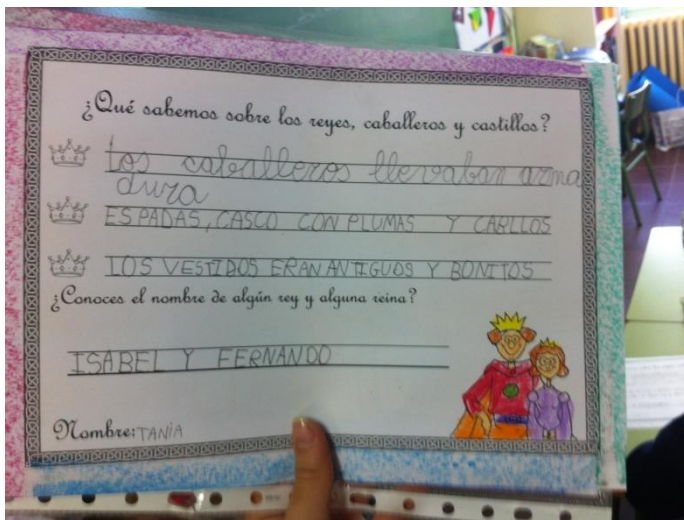 ¿Qué sabemos sobre los reyes, caballeros y castillos?
Los caballeros llevaban arma
dura
ESPADAS, CASCO CON PLUMAS Y CABLLOS
LOS VESTIDOS ERAN ANTIGUOS Y BONITOS
¿Conoces el nombre de algún rey y alguna reina?
ISABEL Y FERNANDO
Nombre: TANIA